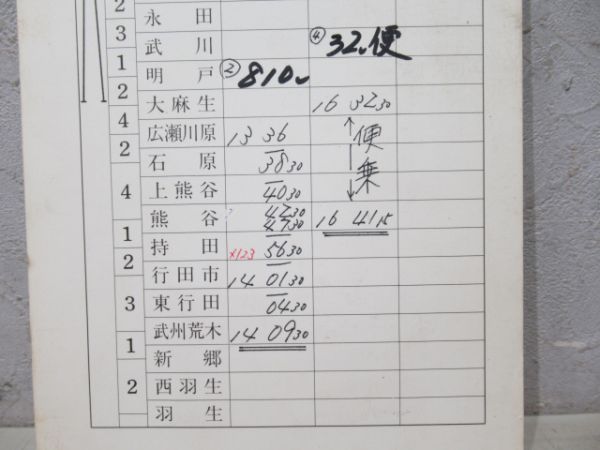 2
永 田
3
武 川 ④ 32.便
1
明 戸 ② 810
2
大麻生 16 32 30
4
広瀬川原 13 36 便
2
石 原 38 30 乗
4
上熊谷 40 30
熊 谷 42 30 47 30 16 41 15
1
持 田 ×123 56 30
2
行田市 14 01 30
3
東行田 04 30
武州荒木 14 09 30
1
新 郷
2
西羽生
羽 生